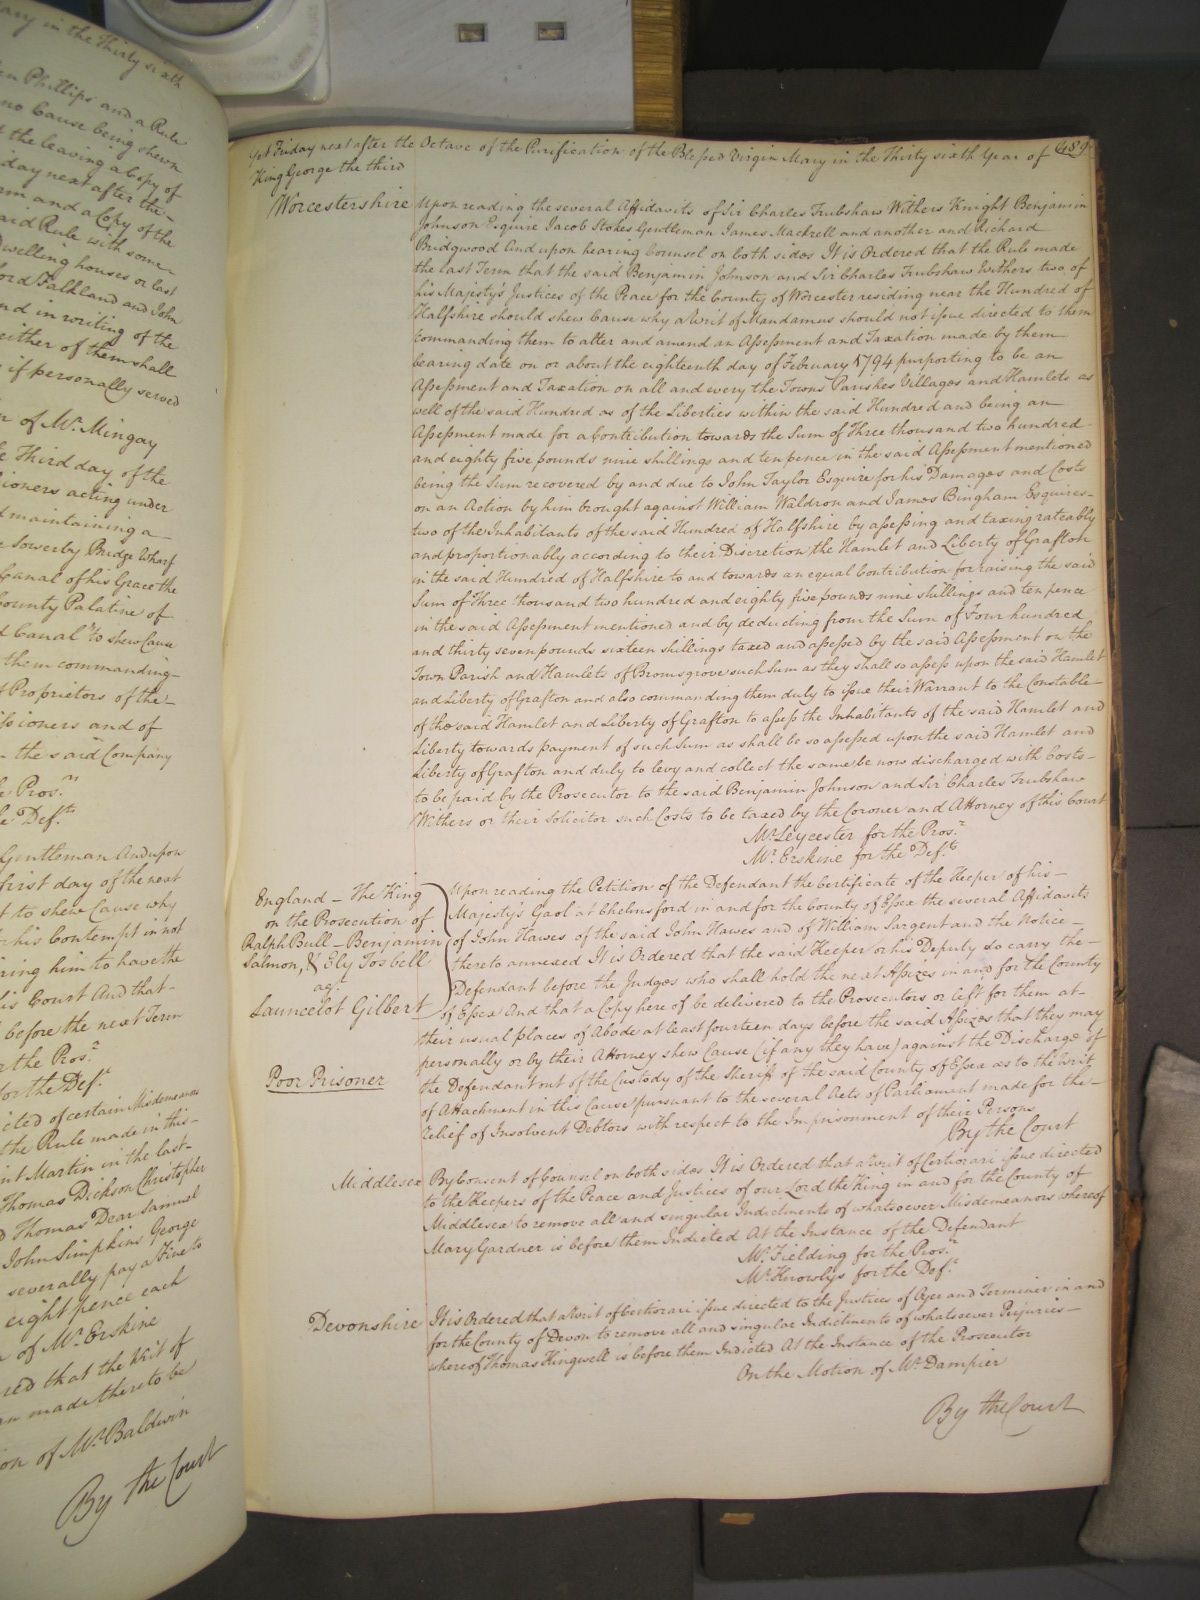 ary in the Thirty sixth
en Phillips and a Rule
no Cause being shewn
t the leaving a Copy of
day next after the
rm and a Copy of the
aid Rule with some
Dwelling houses or last
ord Falkland and John
nd in writing of the
either of them shall
if personally served
n of Mr. Mingay
e Third day of the
ioners acting under
d maintaining a
e Sowerby Bridge Wharf
Canal of his Grace the
County Palatine of
d Canal to shew Cause
them commanding
f Proprietors of the
issioners and of
the said Company
e Pros.r
e Def.ts
Gentleman And upon
first day of the next
t to shew Cause why
r his Contempt in not
ring him to have the
is Court And that
before the next Term
r the Pros.r
for the Def.t
icted of certain Misdemeanors
the Rule made in this
int Martin in the last
Thomas Dickson Christopher
d Thomas Dear Samuel
John Simpkins George
severally pay a Fine to
eight pence each
n of Mr. Erskine
red that the Writ of
n made thereto be
on of Mr. Baldwin
By the Court
Yet Friday next after the Octave of the Purification of the Blessed Virgin Mary in the Thirty sixth Year of 489
King George the third
Worcestershire Upon reading the several Affidavits of Sir Charles Trubshaw Withers Knight Benjamin
Johnson Esquire Jacob Stokes Gentleman James Mackrell and another and Richard
Bridgwood And upon hearing Counsel on both sides It is Ordered that the Rule made
the last Term that the said Benjamin Johnson and Sir Charles Trubshaw Withers two of
his Majesty's Justices of the Peace for the County of Worcester residing near the Hundred of
Halfshire should shew Cause why a Writ of Mandamus should not issue directed to them
commanding them to alter and amend an Assessment and Taxation made by them
bearing date on or about the eighteenth day of February 1794 purporting to be an
Assessment and Taxation on all and every the Towns Parishes Villages and Hamlets as
well of the said Hundred as of the Liberties within the said Hundred and being an
Assessment made for a Contribution towards the Sum of Three thousand two hundred
and eighty five pounds nine shillings and ten pence in the said Assessment mentioned
being the Sum recovered by and due to John Taylor Esquire for his Damages and Costs
on an Action by him brought against William Waldron and James Bingham Esquires
two of the Inhabitants of the said Hundred of Halfshire by assessing and taxing rateably
and proportionably according to their Discretion the Hamlet and Liberty of Grafton
in the said Hundred of Halfshire to and towards an equal Contribution for raising the said
Sum of Three thousand two hundred and eighty five pounds nine shillings and ten pence
in the said Assessment mentioned and by deducting from the Sum of Four hundred
and thirty seven pounds sixteen shillings taxed and assessed by the said Assessment on the
Town Parish and Hamlets of Bromsgrove such Sum as they shall so assess upon the said Hamlet
and Liberty of Grafton and also commanding them duly to issue their Warrant to the Constable
of the said Hamlet and Liberty of Grafton to assess the Inhabitants of the said Hamlet and
Liberty towards payment of such Sum as shall be so assessed upon the said Hamlet and
Liberty of Grafton and duly to levy and collect the same be now discharged with Costs
to be paid by the Prosecutor to the said Benjamin Johnson and Sir Charles Trubshaw
Withers or their Solicitor such Costs to be taxed by the Coroner and Attorney of this Court
Mr. Leycester for the Pros.r
Mr. Erskine for the Def.ts
England - The King
on the Prosecution of
Ralph Bull - Benjamin
Salmon, & Ely Tosbell
ag.t
Launcelot Gilbert
Poor Prisoner
Upon reading the Petition of the Defendant the Certificate of the Keeper of his
Majesty's Gaol at Chelmsford in and for the County of Essex the several Affidavits
of John Hawes of the said John Hawes and of William Sargent and the Notice
thereto annexed It is Ordered that the said Keeper or his Deputy do carry the
Defendant before the Judges who shall hold the next Assizes in and for the County
of Essex And that a Copy hereof be delivered to the Prosecutors or left for them at
their usual places of Abode at least fourteen days before the said Assizes that they may
personally or by their Attorney shew Cause (if any they have) against the Discharge of
the Defendant out of the Custody of the Sheriff of the said County of Essex as to the Writ
of Attachment in this Cause pursuant to the several Acts of Parliament made for the
relief of Insolvent Debtors with respect to the Imprisonment of their Persons
By the Court
Middlesex By Consent of Counsel on both sides It is Ordered that a Writ of Certiorari issue directed
to the Keepers of the Peace and Justices of our Lord the King in and for the County of
Middlesex to remove all and singular Indictments of whatsoever Misdemeanors whereof
Mary Gardner is before them Indicted At the Instance of the Defendant
Mr. Fielding for the Pros.r
Mr. Knowlys for the Def.t
Devonshire It is Ordered that a Writ of Certiorari issue directed to the Justices of Oyer and Terminer in and
for the County of Devon to remove all and singular Indictments of whatsoever Perjuries
whereof Thomas Hingwell is before them Indicted At the Instance of the Prosecutor
On the Motion of Mr. Dampier
By the Court